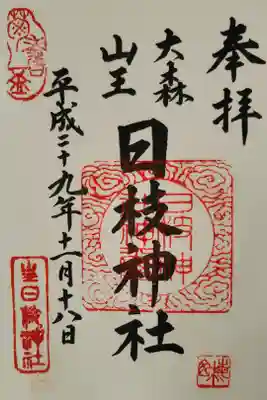 奉拝
大森
山王
日枝神社
平成二十九年十一月十八日
日枝神社